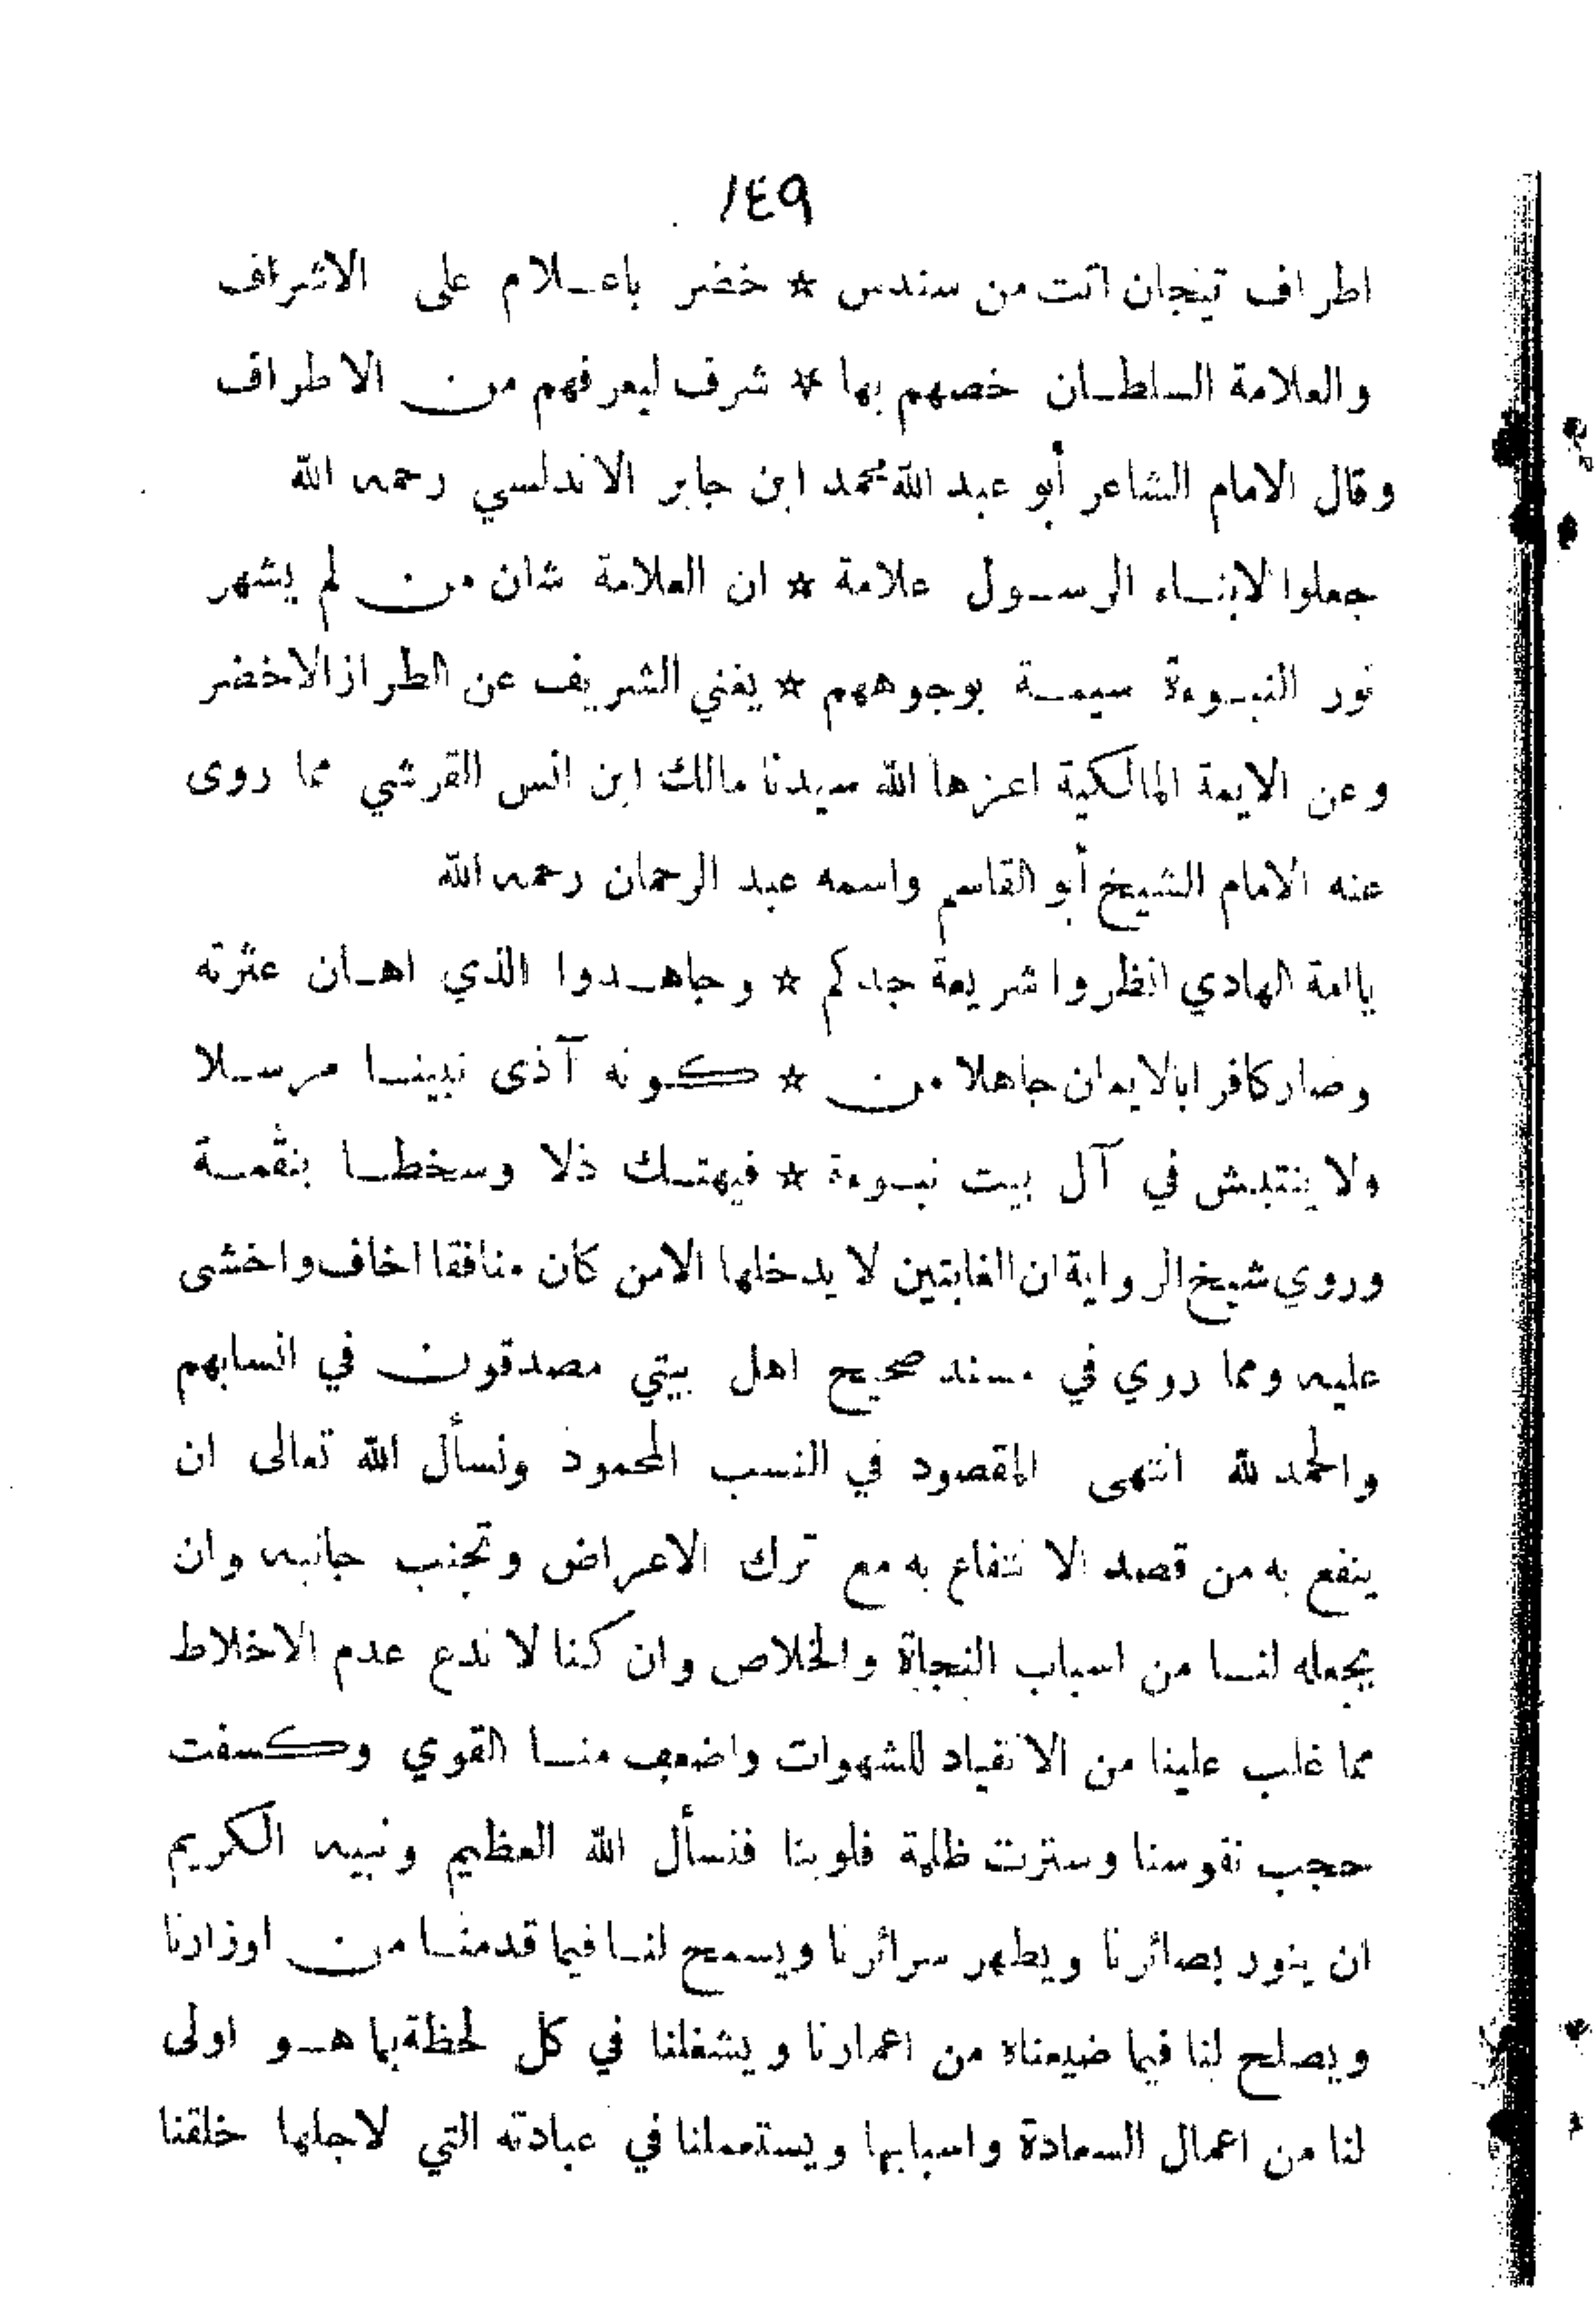 ١٤٩
اطراف تيجان اتت من سندس * خضر باعلام على الاشراف
والعلامة السلطان خصهم بها * شرف ليعرفهم من الاطراف
وقال الامام الشاعر أبو عبد الله محمد ابن جابر الاندلسي رحمه الله
جعلوا لابناء الرسول علامة * ان العلامة شان من لم يشهر
نور النبوءة سيمة بوجوههم * يغني الشريف عن الطراز الاخضر
وعن الايمة المالكية اعزها الله سيدنا مالك ابن انس القرشي مما روى
عنه الامام الشيخ أبو القاسم واسمه عبد الرحمان رحمه الله
ياامة الهادي انظروا شريعة جدكم * وجاهدوا الذي اهان عثرته
وصار كافرا بالايمان جاهلا من * كونه آذى نبينا مرسلا
ولا ينتبش في آل بيت نبوءة * فيهتك ذلا وسخطا بنقمة
وروي شيخ الرواية ان الغابتين لا يدخلها الامن كان منافقا اخاف واخشى
عليه ومما روي في مسند صحيح اهل بيتي مصدقون في انسابهم
والحمد لله انتهى المقصود في النسب المحمود ونسأل الله تعالى ان
ينفع به من قصد الانتفاع به مع ترك الاعراض وتجنب جانبه وان
يجعله لنا من اسباب النجاة والخلاص وان كنا لا ندع عدم الاخلاط
مما غلب علينا من الانقياد للشهوات واضعف منا القوي وكسفت
حجب نفوسنا وسترت ظلمة قلوبنا فنسأل الله العظيم ونبيه الكريم
ان ينور بصائرنا ويطهر سرائرنا ويسمح لنا فيما قدمنا من اوزارنا
ويصلح لنا فيما ضيعناه من اعمارنا ويشغلنا في كل لحظة بما هو اولى
لنا من اعمال السعادة واسبابها ويستعملنا في عبادته التي لاجلها خلقنا